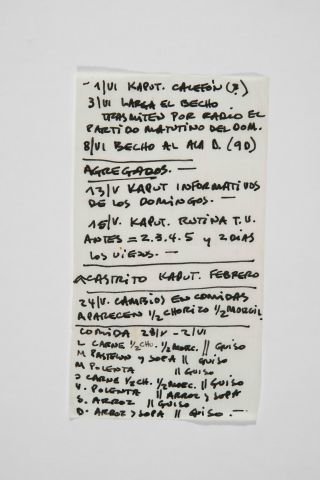 - 1/VI KAPUT. CALEFÓN (?)
3/VI LARGA EL BECHO.
TRASMITEN POR RADIO EL
PARTIDO MATUTINO DEL DOM.
8/VI BECHO AL ALA D. (9D)
AGREGADOS. —
13/V KAPUT INFORMATIVOS
DE LOS DOMINGOS. —
15/V. KAPUT. RUTINA T.V.
ANTES = 2.3.4.5 y 2 DIAS
LOS VIEJOS. —
CASTRITO KAPUT. FEBRERO
24/V. CAMBIOS EN COMIDAS
APARECEN 1/2 CHORIZO 1/2 MORCIL.
COMIDA 28/V - 2/VI
L CARNE 1/2 CHO. 1/2 MORC. // GUISO
M PASTELON y SOPA // GUISO
M POLENTA // GUISO
J CARNE 1/2 CH. 1/2 MORC. // GUISO
V. POLENTA // ARROZ y SOPA
S. ARROZ // GUISO
D. ARROZ y SOPA // GUISO. —